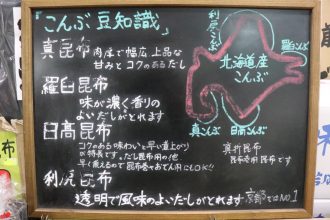 「こんぶ豆知識」
真昆布 肉厚で幅広 上品な
甘みとコクのあるだし
羅臼昆布
味が濃く香りの
よいだしがとれます
日高昆布
コクのある味わいと早い煮上がり
が特長です。だし昆布用の他
早く煮えるので 昆布巻やおでん用にもOK!!
利尻昆布
透明で風味のよいだしがとれます 京都ではNO.1
利尻こんぶ
北海道産
こんぶ
羅臼こんぶ
真こんぶ
日高こんぶ
昆布